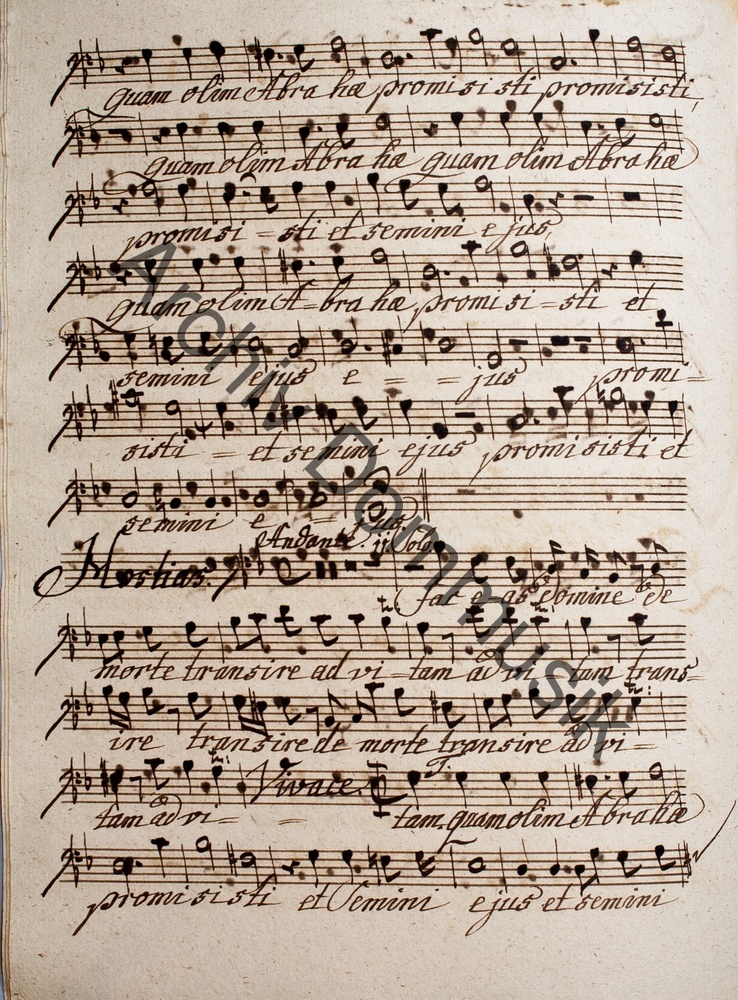 quam olim Abra hæ promi si sti promisisti,
quam olim Abra hæ quam olim Abra hæ
promisi = sti et semini ejus,
quam olim A=bra hæ promi si = sti et
semini ejus e = = jus promi=
sisti = et semini ejus promisisti et
semini e = = jus
Andante. Solo
Hostias. fac e-as Domine de
morte transire ad vi = tam ad vi = tam trans=
ire transire de morte transire ad vi =
tam ad vi = = Vivace. T. tam. quam olim Abrahæ
promisisti et Semini ejus et semini
Archiv Dommusik